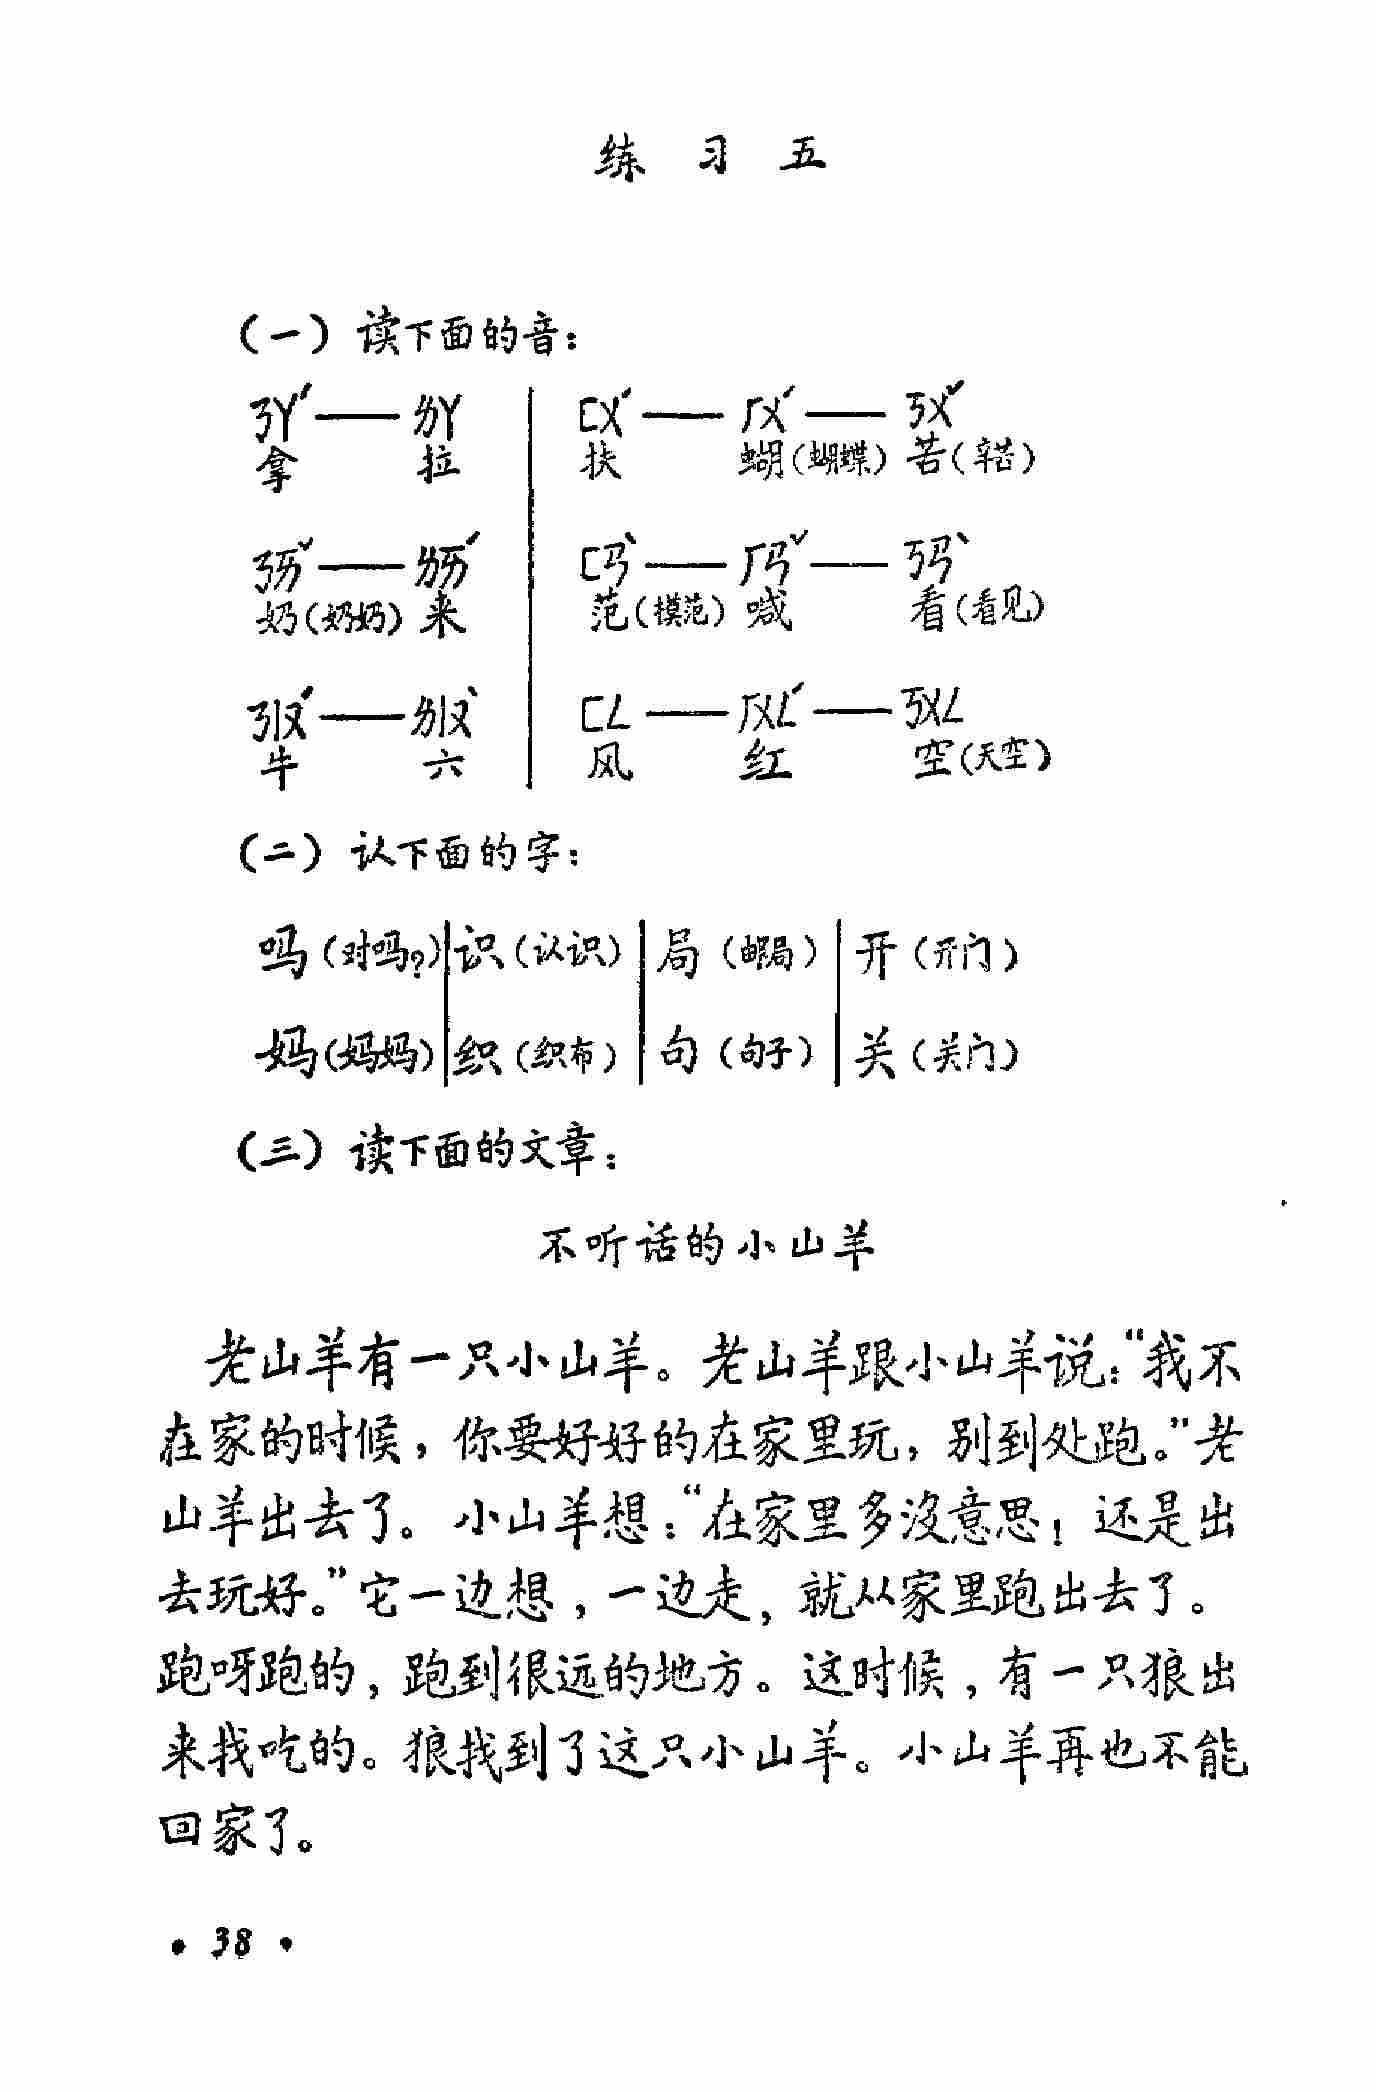 练 习 五
(一) 读下面的音:
ㄋㄚˊ——ㄌㄚ ㄈㄨˊ——ㄏㄨˊ——ㄎㄨˇ
拿 拉 扶 蝴(蝴蝶) 苦(辛苦)
ㄋㄞˇ——ㄌㄞˊ ㄈㄢˋ——ㄏㄢˇ——ㄎㄢˋ
奶(奶奶) 来 范(模范) 喊 看(看见)
ㄋㄧㄡˊ——ㄌㄧㄡˋ ㄈㄥ——ㄏㄨㄥˊ——ㄎㄨㄥ
牛 六 风 红 空(天空)
(二) 认下面的字:
吗(对吗?) 识(认识) 局(邮局) 开(开门)
妈(妈妈) 织(织布) 句(句子) 关(关门)
(三) 读下面的文章:
不听话的小山羊
老山羊有一只小山羊。老山羊跟小山羊说:“我不
在家的时候,你要好好的在家里玩,别到处跑。”老
山羊出去了。小山羊想:“在家里多没意思!还是出
去玩好。”它一边想,一边走,就从家里跑出去了。
跑呀跑的,跑到很远的地方。这时候,有一只狼出
来找吃的。狼找到了这只小山羊。小山羊再也不能
回家了。
• 38 •